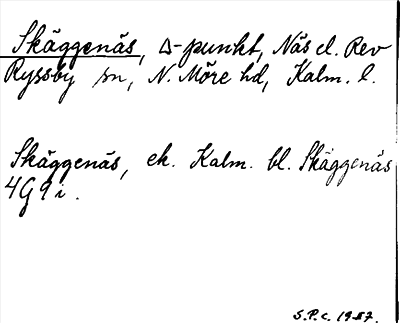 Skäggenäs, △-punkt, Näs el. Rev
Ryssby sn, N. Möre hd, Kalm. l.
Skäggenäs, ek. Kalm. bl. Skäggenäs
4G9i.
S.P.c. 1957.